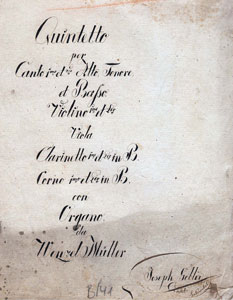 Quindetto
per
Canto 1mo et 2do Alto Tenore
et Basso
Violino 1mo et 2do
Viola
Clarinetto 1mo et 2do in B.
Corno 1mo et 2do in B.
con
Organo
da
Wenzel Müller
Joseph
B/41